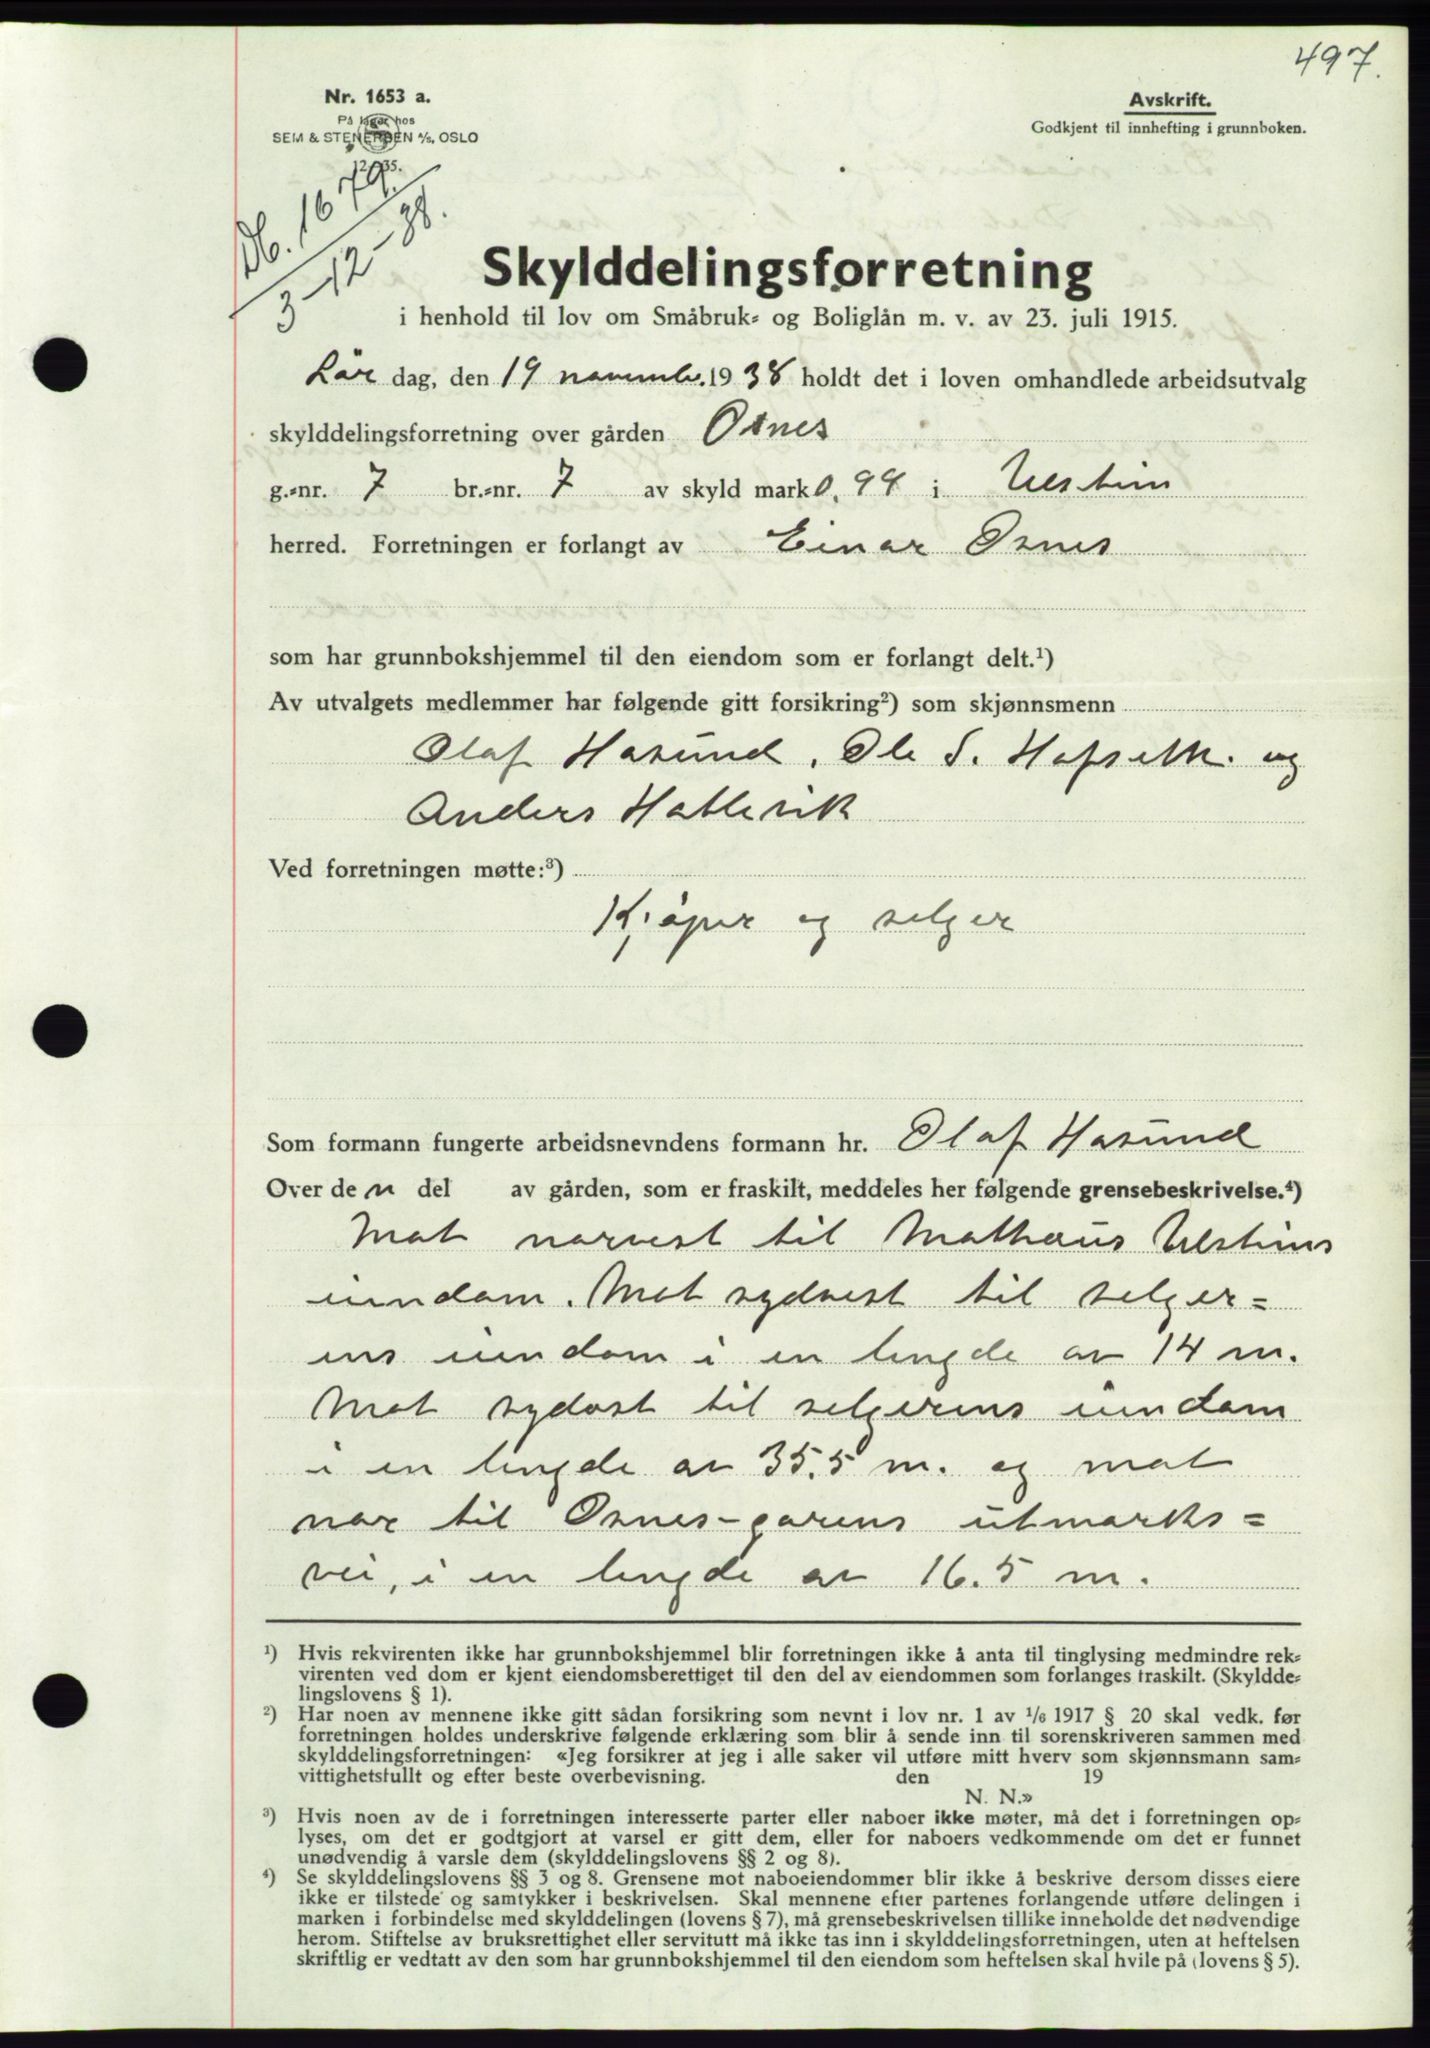 497.
Nr. 1653 a.
På lager hos
SEM & STENERSEN A/S, OSLO
12 35.
Avskrift.
Godkjent til innhefting i grunnboken.
Db. 1679.
3-12-38.
Skylddelingsforretning
i henhold til lov om Småbruk- og Boliglån m. v. av 23. juli 1915.
Lör dag, den 19 novemb. 1938 holdt det i loven omhandlede arbeidsutvalg
skylddelingsforretning over gården Osnes
g.-nr. 7 br.-nr. 7 av skyld mark 0,94 i Ulstein
herred. Forretningen er forlangt av Einar Osnes
som har grunnbokshjemmel til den eiendom som er forlangt delt.¹)
Av utvalgets medlemmer har følgende gitt forsikring²) som skjønnsmenn
Olaf Hasund, Ole S. Hofseth. og
Anders Hatlevik
Ved forretningen møtte:³)
Kjöper og selger
Som formann fungerte arbeidsnevndens formann hr. Olaf Hasund
Over den del av gården, som er fraskilt, meddeles her følgende grensebeskrivelse.⁴)
Mot norvest til Mathæus Ulsteins
eiendom. Mot sydvest til selger-
ens eiendom i en lengde av 14 m.
Mot sydost til selgerens eiendom
i en lengde av 35,5 m. og mot
nor til Osnes-garens utmarks-
vei, i en lengde av 16.5 m.
¹) Hvis rekvirenten ikke har grunnbokshjemmel blir forretningen ikke å anta til tinglysing medmindre rek-
virenten ved dom er kjent eiendomsberettiget til den del av eiendommen som forlanges fraskilt. (Skyldde-
lingslovens § 1).
²) Har noen av mennene ikke gitt sådan forsikring som nevnt i lov nr. 1 av 1/6 1917 § 20 skal vedk. før
forretningen holdes underskrive følgende erklæring som blir å sende inn til sorenskriveren sammen med
skylddelingsforretningen: «Jeg forsikrer at jeg i alle saker vil utføre mitt hverv som skjønnsmann sam-
vittighetsfullt og efter beste overbevisning. den 19
N. N.»
³) Hvis noen av de i forretningen interesserte parter eller naboer ikke møter, må det i forretningen op-
lyses, om det er godtgjort at varsel er gitt dem, eller for naboers vedkommende om det er funnet
unødvendig å varsle dem (skylddelingslovens §§ 2 og 8).
⁴) Se skylddelingslovens §§ 3 og 8. Grensene mot naboeiendommer blir ikke å beskrive dersom disses eiere
ikke er tilstede og samtykker i beskrivelsen. Skal mennene efter partenes forlangende utføre delingen i
marken i forbindelse med skylddelingen (lovens § 7), må grensebeskrivelsen tillike inneholde det nødvendige
herom. Stiftelse av bruksrettighet eller servitutt må ikke tas inn i skylddelingsforretningen, uten at heftelsen
skriftlig er vedtatt av den som har grunnbokshjemmel til den eiendom som heftelsen skal hvile på (lovens § 5).